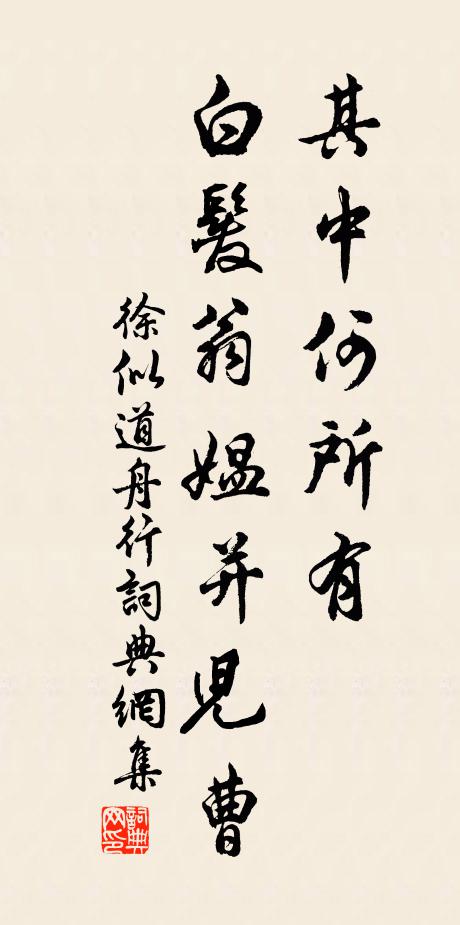 其中何所有
白髮翁媼并兒曹
徐似道舟行詞典網集
詞典
网印